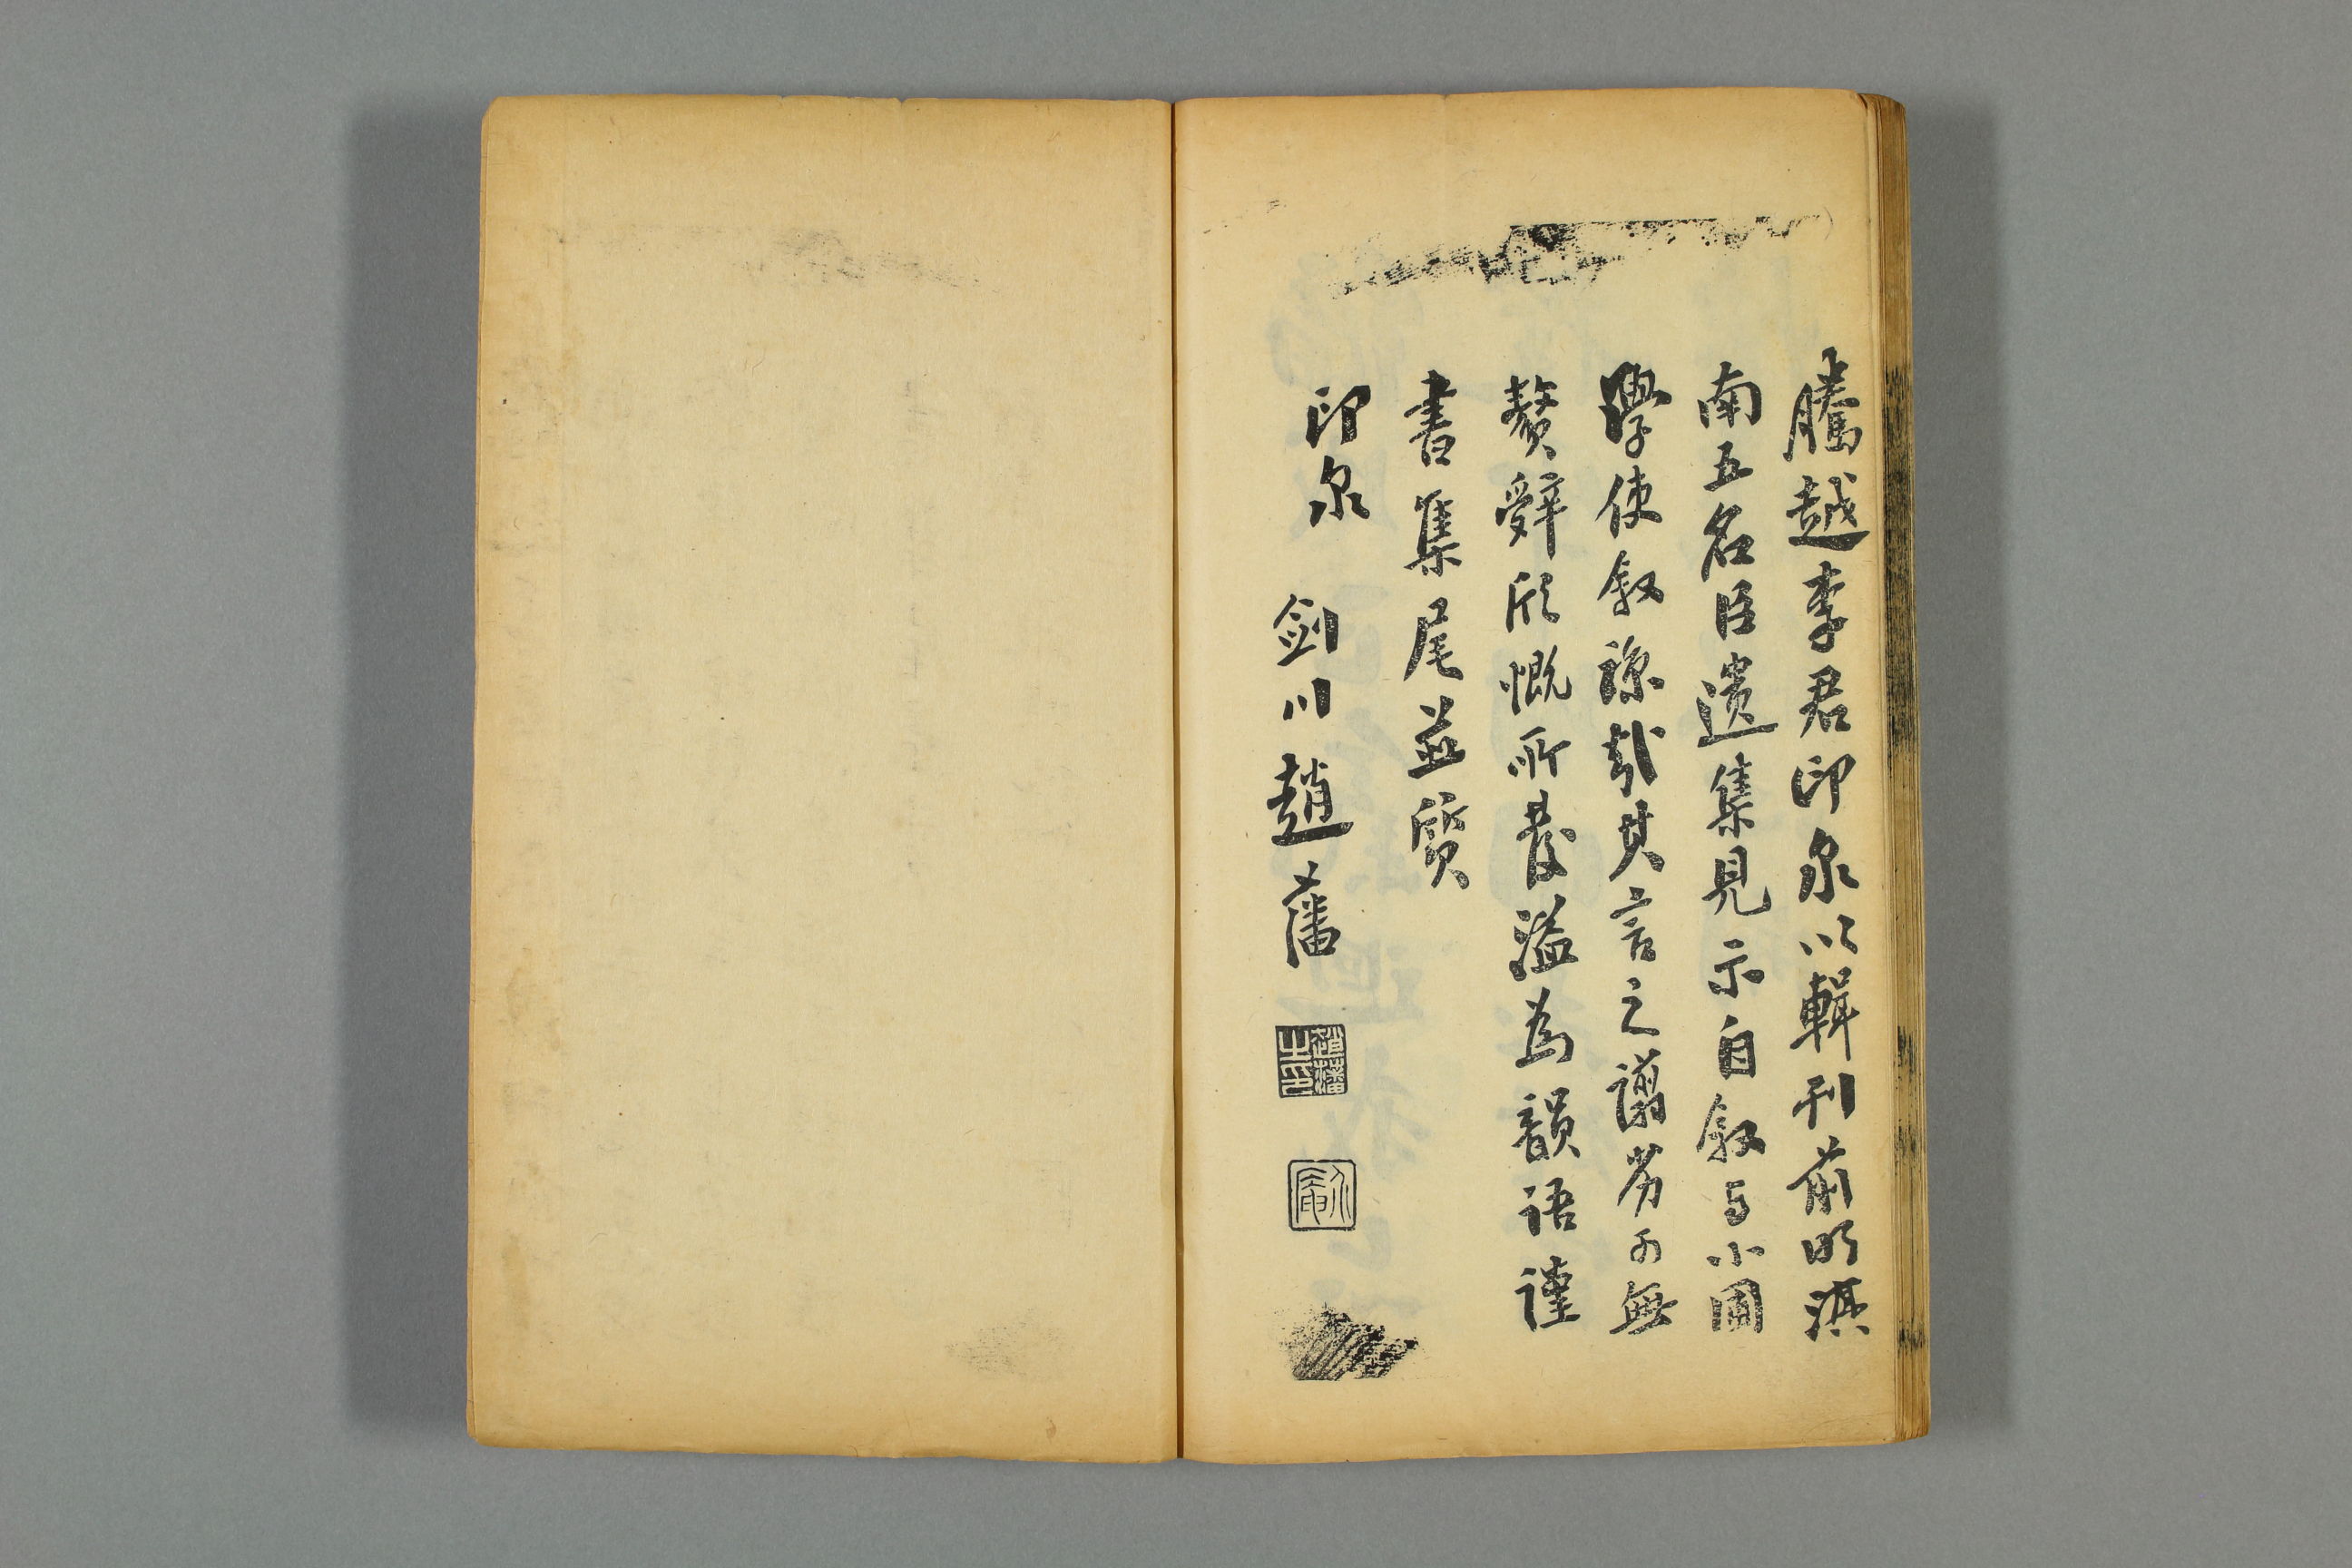 騰越李君印泉以輯刊前明滇
南五名臣遺集見示自敘与小圃
學使敘諒哉其言之謭劣不無
贅辭欣慨所發溢為韻語謹
書集尾並質
印泉　劍川趙藩
趙藩之印